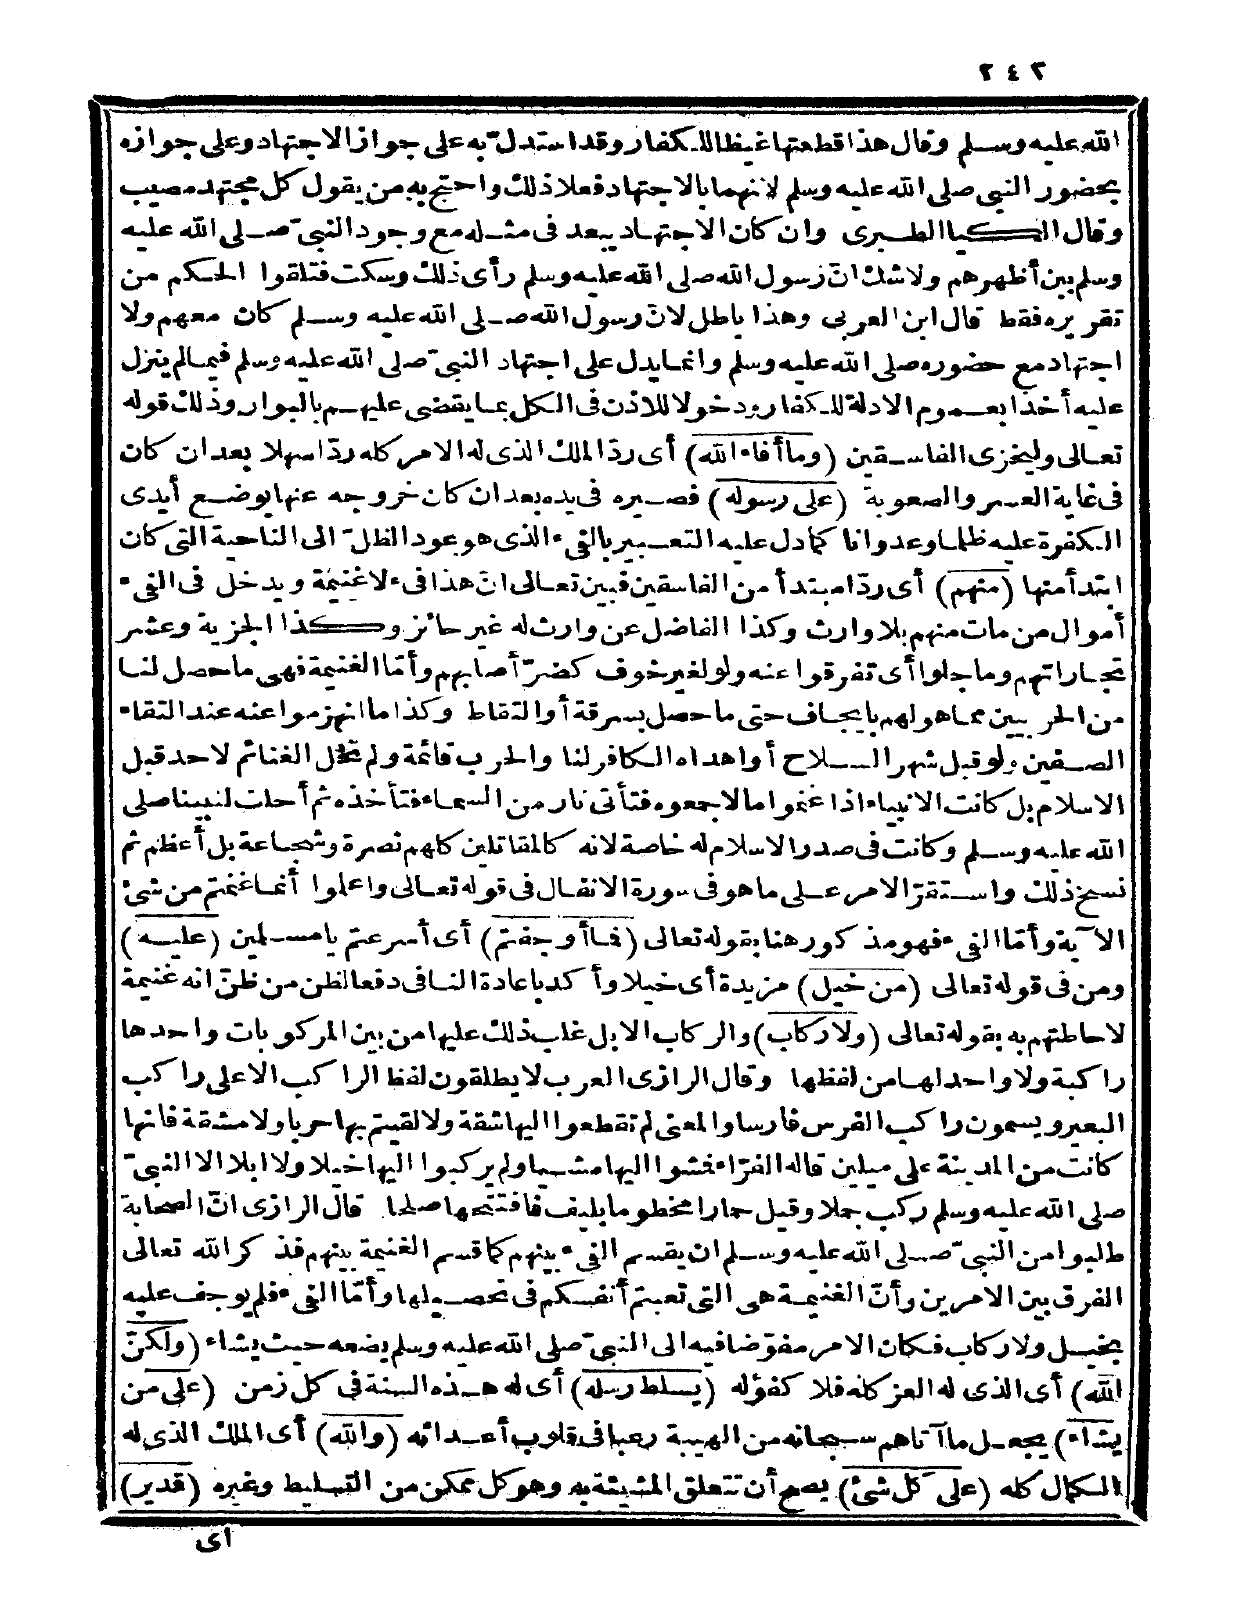 ٢٤٢
الله عليه وسلم وقال هذا قطعتها غيظا للكفار وقد استدلّ به على جواز الاجتهاد وعلى جوازه
بحضور النبي صلى الله عليه وسلم لانهما بالاجتهاد فعلا ذلك واحتج به من يقول كل مجتهد مصيب
وقال الكيا الطبرى وان كان الاجتهاد يبعد فى مثله مع وجود النبىّ صلى الله عليه
وسلم بين أظهرهم ولاشك انّ رسول الله صلى الله عليه وسلم رأى ذلك وسكت فتلقوا الحكم من
تقريره فقط قال ابن العربى وهذا باطل لانّ رسول الله صلى الله عليه وسلم كان معهم ولا
اجتهاد مع حضوره صلى الله عليه وسلم وانما يدل على اجتهاد النبىّ صلى الله عليه وسلم فيما لم ينزل
عليه أخذا بعموم الادلة للكفار ودخولا للاذن فى الكل بما يقضى عليهم بالبوار وذلك قوله
تعالى وليخزى الفاسقين (وما أفاء الله) أى ردّ الملك الذى له الامر كله ردّا سهلا بعد ان كان
فى غاية العسر والصعوبة (على رسوله) فصيره فى يده بعد ان كان خروجه عنها بوضع أيدى
الكفرة عليه ظلما وعدوانا كما دل عليه التعبير بالفىء الذى هو عود الظلّ الى الناحية التى كان
ابتدأ منها (منهم) أى ردّا مبتدأ من الفاسقين فبين تعالى انّ هذا فىء لا غنيمة ويدخل فى الفىء
أموال من مات منهم بلا وارث وكذا الفاضل عن وارث له غير حائز وكذا الجزية وعشر
تجاراتهم وما جلوا أى تفرقوا عنه ولو لغير خوف كضرّ أصابهم وأمّا الغنيمة فهى ما حصل لنا
من الحربيين مما هو لهم بايجاف حتى ما حصل بسرقة أو التقاط وكذا ما انهزموا عنه عند التقاء
الصفين ولو قبل شهر السلاح أو اهداه الكافر لنا والحرب قائمة ولم تحل الغنائم لاحد قبل
الاسلام بل كانت الانبياء اذا غنموا مالا جمعوه فتأتى نار من السماء فتأخذه ثم أحلت لنبينا صلى
الله عليه وسلم وكانت فى صدر الاسلام له خاصة لانه كالمقاتلين كلهم نصرة وشجاعة بل أعظم ثم
نسخ ذلك واستقرّ الامر على ما هو فى سورة الانفال فى قوله تعالى واعلموا أنما غنمتم من شئ
الآية وأمّا الفىء فهو مذكور هنا بقوله تعالى (فما أوجفتم) أى أسرعتم يا مسلمين (عليه)
ومن فى قوله تعالى (من خيل) مزيدة أى خيلا وأكد باعادة النافى دفعا لظن من ظنّ انه غنيمة
لاحاطتهم به بقوله تعالى (ولا ركاب) والركاب الابل غلب ذلك عليها من بين المركوبات واحدها
راكبة ولا واحد لها من لفظها وقال الرازى العرب لا يطلقون لفظ الراكب الا على راكب
البعير ويسمون راكب الفرس فارسا والمعنى لم تقطعوا اليها شقة ولا لقيتم بها حربا ولا مشقة فانها
كانت من المدينة على ميلين قاله الفرّاء فمشوا اليها مشيا ولم يركبوا اليها خيلا ولا ابلا الا النبىّ
صلى الله عليه وسلم ركب جملا وقيل حمارا مخطوما بليف فافتتحها صلحا قال الرازى انّ الصحابة
طلبوا من النبىّ صلى الله عليه وسلم ان يقسم الفىء بينهم كما قسم الغنيمة بينهم فذكر الله تعالى
الفرق بين الامرين وأنّ الغنيمة هى التى تعبتم أنفسكم فى تحصيلها وأمّا الفىء فلم يوجف عليه
بخيل ولا ركاب فكان الامر مفوّضا فيه الى النبىّ صلى الله عليه وسلم يضعه حيث يشاء (ولكنّ
الله) أى الذى له العز كله فلا كفؤله (يسلط رسله) أى له هذه السنة فى كل زمن (على من
يشاء) بجعل ما آتاهم سبحانه من الهيبة رعبا فى قلوب أعدائه (والله) أى الملك الذى له
الكمال كله (على كل شئ) يصح أن تتعلق المشيئة به وهو كل ممكن من التسليط وغيره (قدير)
اى